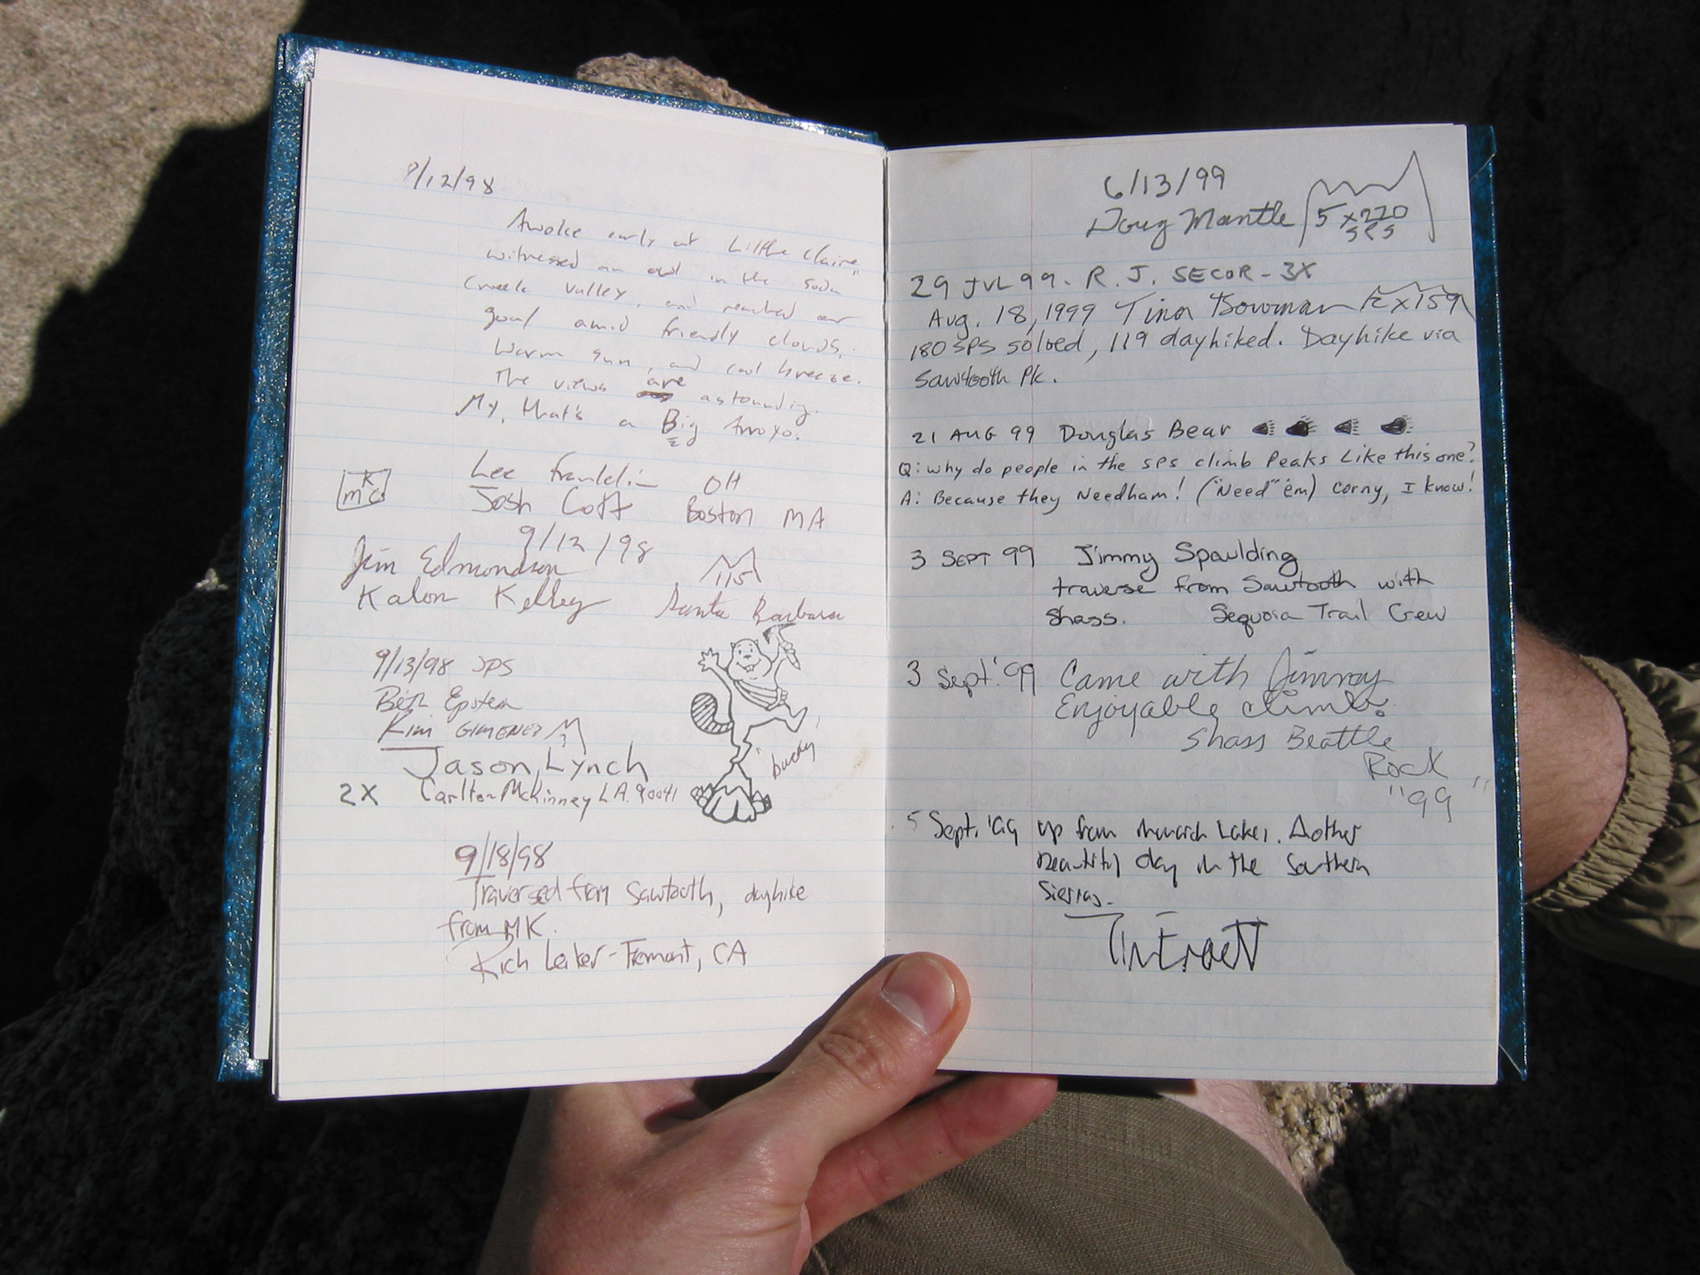 /12/98
Awoke early at Little Claire,
witnessed an owl in the Soda
Creek Valley, and reached our
goal amid friendly clouds,
warm sun, and cool breeze.
The views are astounding.
My, that's a Big Arroyo.
Lee Franklin OH
K
MC
Josh Boston MA
9/12/98
Jim Edmondson
115
Kalon Kelley Santa Barbara
9/13/98 SPS
Beth Epstein
Kim GIMENEZ
Jason Lynch
"bucky"
2X Carlton McKinney LA. 90041
9/18/98
Traversed from Sawtooth, dayhike
from MK.
Rich Leiker - Fremont, CA
6/13/99
Doug Mantle 5 x 220
SPS
29 JUL 99. R. J. SECOR - 3X
Aug. 18, 1999 Tina Bowman x159
180 SPS soloed, 119 dayhiked. Dayhike via
Sawtooth Pk.
21 AUG 99 Douglas Bear
Q: why do people in the SPS climb Peaks Like this one?
A: Because they Needham! ("Need" 'em) corny, I know!
3 SEPT 99 Jimmy Spaulding
traverse from Sawtooth with
Shass. Sequoia Trail Crew
3 Sept. '99 Came with Jimmy
Enjoyable climb.
Shass Beattle
Rock
"99"
5 Sept. '99 Up from Monarch Lakes. Another
beautiful day in the Southern
Sierras.